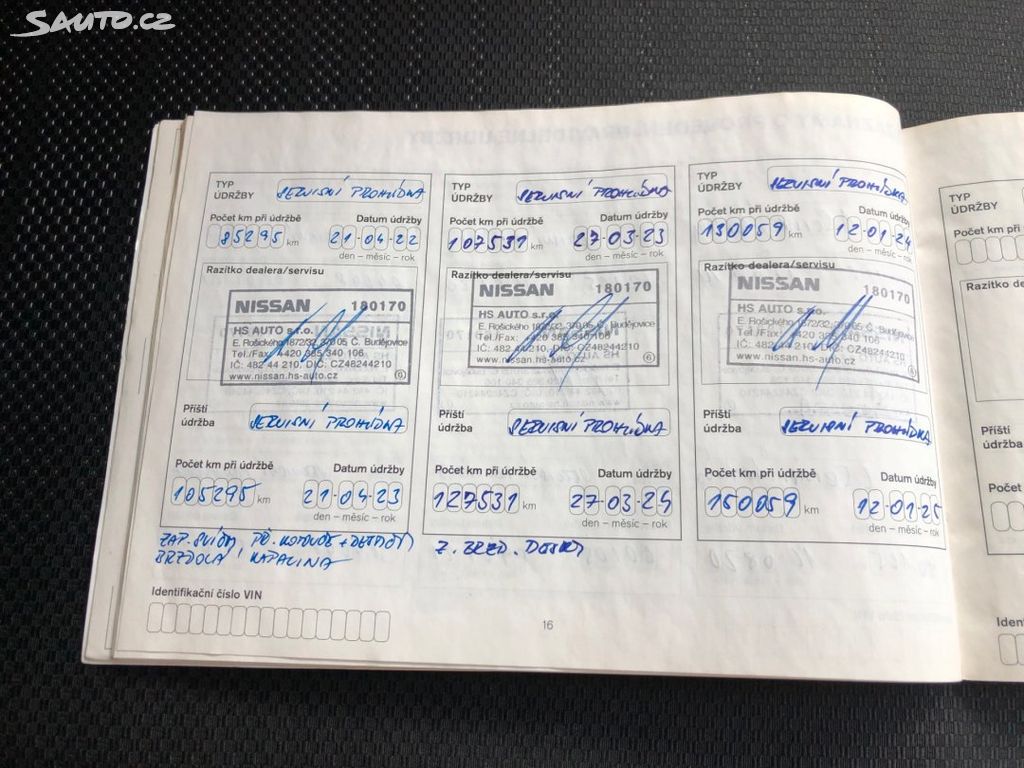 SAUTO.CZ
TYP ÚDRŽBY SERVISNÍ PROHLÍDKA
Počet km při údržbě Datum údržby
85295 km 21-04-22
den – měsíc – rok
Razítko dealera/servisu
NISSAN 180170
HS AUTO s.r.o.
E. Rošického 1872/32, 370 05 Č. Budějovice
Tel./Fax: +420 385 340 106
IČ: 482 44 210, DIČ: CZ48244210
www.nissan.hs-auto.cz (6)
Příští údržba SERVISNÍ PROHLÍDKA
Počet km při údržbě Datum údržby
105295 km 21-04-23
den – měsíc – rok
ZAP. SVÍČKY, PŘ. KOTOUČE + DESTIČKY
BRZDOVÁ KAPALINA
TYP ÚDRŽBY SERVISNÍ PROHLÍDKA
Počet km při údržbě Datum údržby
107531 km 27-03-23
den – měsíc – rok
Razítko dealera/servisu
NISSAN 180170
HS AUTO s.r.o.
E. Rošického 1872/32, 370 05 Č. Budějovice
Tel./Fax: +420 385 340 106
IČ: 482 44 210, DIČ: CZ48244210
www.nissan.hs-auto.cz (6)
Příští údržba SERVISNÍ PROHLÍDKA
Počet km při údržbě Datum údržby
127531 km 27-03-24
den – měsíc – rok
Z. BRZD. DESKY
TYP ÚDRŽBY SERVISNÍ PROHLÍDKA
Počet km při údržbě Datum údržby
130059 km 12-01-24
den – měsíc – rok
Razítko dealera/servisu
NISSAN 180170
HS AUTO s.r.o.
E. Rošického 1872/32, 370 05 Č. Budějovice
Tel./Fax: +420 385 340 106
IČ: 482 44 210, DIČ: CZ48244210
www.nissan.hs-auto.cz (6)
Příští údržba SERVISNÍ PROHLÍDKA
Počet km při údržbě Datum údržby
150059 km 12-01-25
den – měsíc – rok
Identifikační číslo VIN
16
TYP ÚDRŽBY
Počet km
Razítko de
Příští údržba
Počet
Iden